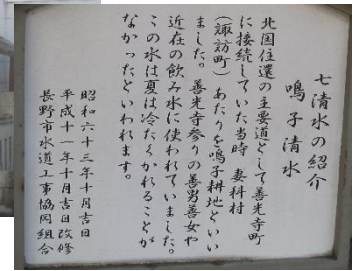 七清水の紹介
鳴子清水
北国往還の主要道として善光寺町
に接続していた当時 妻科村
(諏訪町) あたりを鳴子耕地といい
ました。 善光寺参りの善男善女や
近在の飲み水に使われていました。
この水は夏は冷たくかれることが
なかったといわれます。
昭和六十三年十月吉日
平成十一年十月吉日改修
長野市水道工事協同組合